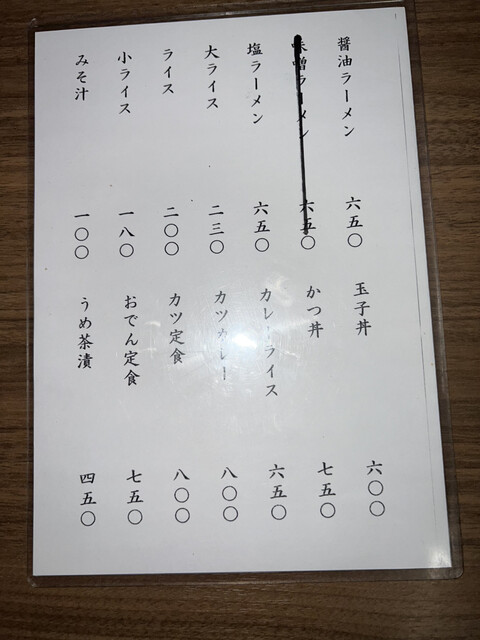 醤油ラーメン 六五〇
味噌ラーメン 六五〇
塩ラーメン 六五〇
大ライス 二三〇
ライス 二〇〇
小ライス 一八〇
みそ汁 一〇〇
玉子丼 六〇〇
かつ丼 七五〇
カレーライス 六五〇
カツカレー 八〇〇
カツ定食 八〇〇
おでん定食 七五〇
うめ茶漬 四五〇